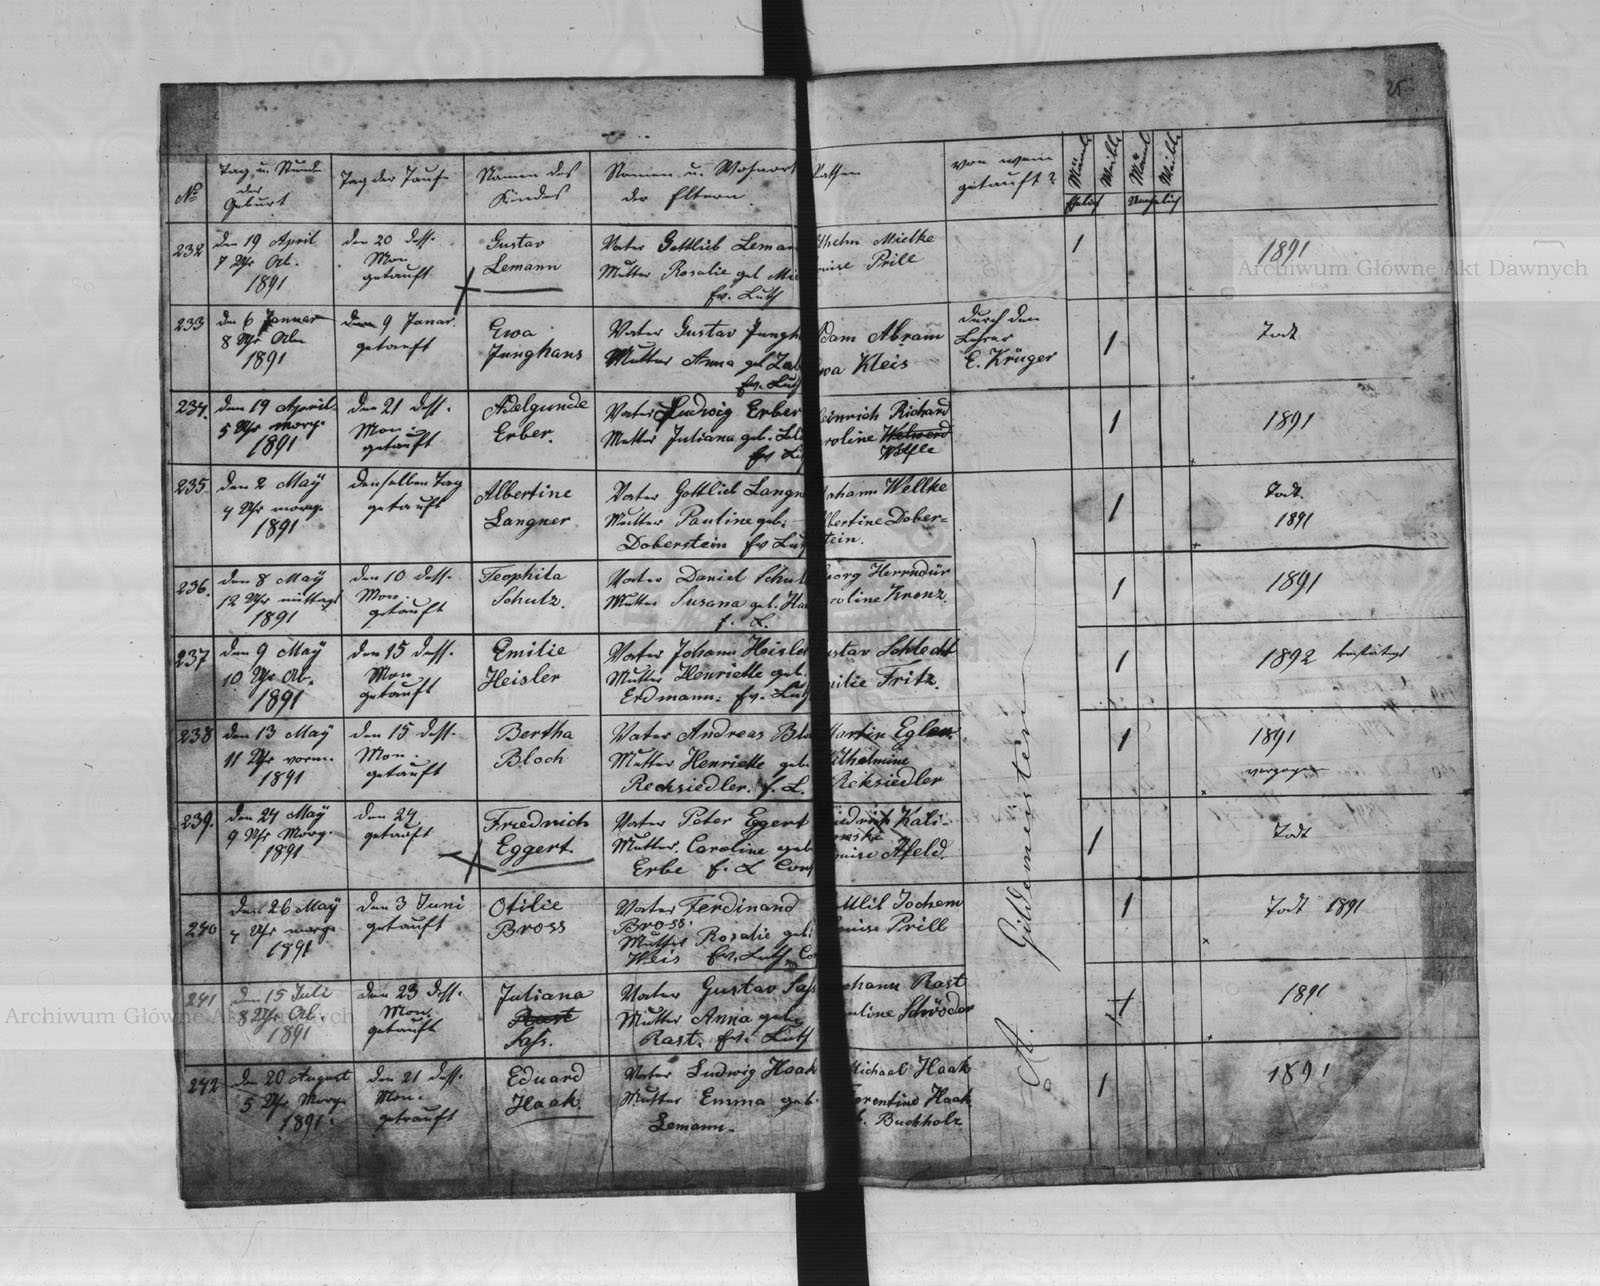 25
No
Tag u Stunde
der
Geburt
Tag der Taufe
Namen des
Kindes
Namen u. Wohnort
der Eltern.
Pathen
von wem
getauft?
Männl
Weibl
Männl
Weibl
Ehelich
Unehelich
232
den 19 April
7 Uhr Ab.
1891
den 20 dess.
Mon
getauft
Gustav
Lemann
Vater Gottlieb Leman
Mutter Rosalie geb Mi
Ev. Luth
lhelm Mielke
uise Prill
1
1891
233
den 6 Januar
8 Uhr Abn
1891
den 9 Janar.
getauft
Ewa
Junghans
Vater Gustav Jungh
Mutter Anna geb
Ev. Luth
dam Abram
wa Kleis
durch den
Lehrer
E. Krüger
1
Todt
234.
den 19 April
5 Uhr morg.
1891
den 21 dess.
Mon.
getauft
Adelgunde
Erber.
Vater Ludwig Erber
Mutter Juliana geb.
Ev Lu
einrich Richard
roline
Wölfle
1
1891
235
den 2 May
4 Uhr morg.
1891
denselben Tag
getauft
Albertine
Langner
Vater Gottlieb Langn
Mutter Pauline geb.
Doberstein Ev Lu
ohann Wellke
lbertine Dober=
stein.
1
Todt.
1891
236.
den 8 May
12 Uhr mittags
1891
den 10 dess.
Mon.
getauft
Teophila
Schulz.
Vater Daniel Schul
Mutter Susana geb. Ha
E. L.
eorg Herrndür
roline Krenz.
1
1891
237
den 9 May
10 Uhr Ab.
1891
den 15 dess.
Mon
getauft
Emilie
Heisler
Vater Johann Heisler
Mutter Henriette geb.
Erdmann. Ev. Luth
ustav Schlecht
milie Fritz.
1
1892
238
den 13 May
11 Uhr vorm.
1891
den 15 dess.
Mon.
getauft
Bertha
Bloch
Vater Andreas Blo
Mutter Henriette geb
Recksiedler. E. L.
Martin Egler
ilhelmine
Reksiedler
1
1891
239.
den 24 May
9 Uhr Morg.
1891
den 24
getauft
Friedrich
Eggert.
Vater Peter Eggert
Mutter. Caroline geb
Erbe E. L Con
iedrich Kali
owski
uise Afeld.
1
Todt
240
den 26 May
4 Uhr morgs
1891
den 3 Juni
getauft
Otilie
Bross
Vater Ferdinand
Bross.
Mutter Rosalie geb.
Weis Ev. Luth Co
ottlib Jochem
ouise Prill
1
Todt 1891
241
den 15 Juli
8 Uhr Ab.
1891
den 23 dess.
Mon.
getauft
Juliana
Rast
Sass.
Vater Gustav Sass
Mutter Anna geb.
Rast. Ev. Luth
ohann Rast
uline Schröder
1
1891
242
den 20 August
5 Uhr Morgs
1891.
den 21 dess.
Mon.
getauft
Eduard
Haak.
Vater Ludwig Haak
Mutter Emma geb.
Lemann.
Michael Haak
lorentine Haak
b. Buchholz
1
1891
A. Gildemeister
Archiwum Główne Akt Dawnych
Archiwum Główne Akt Dawnych